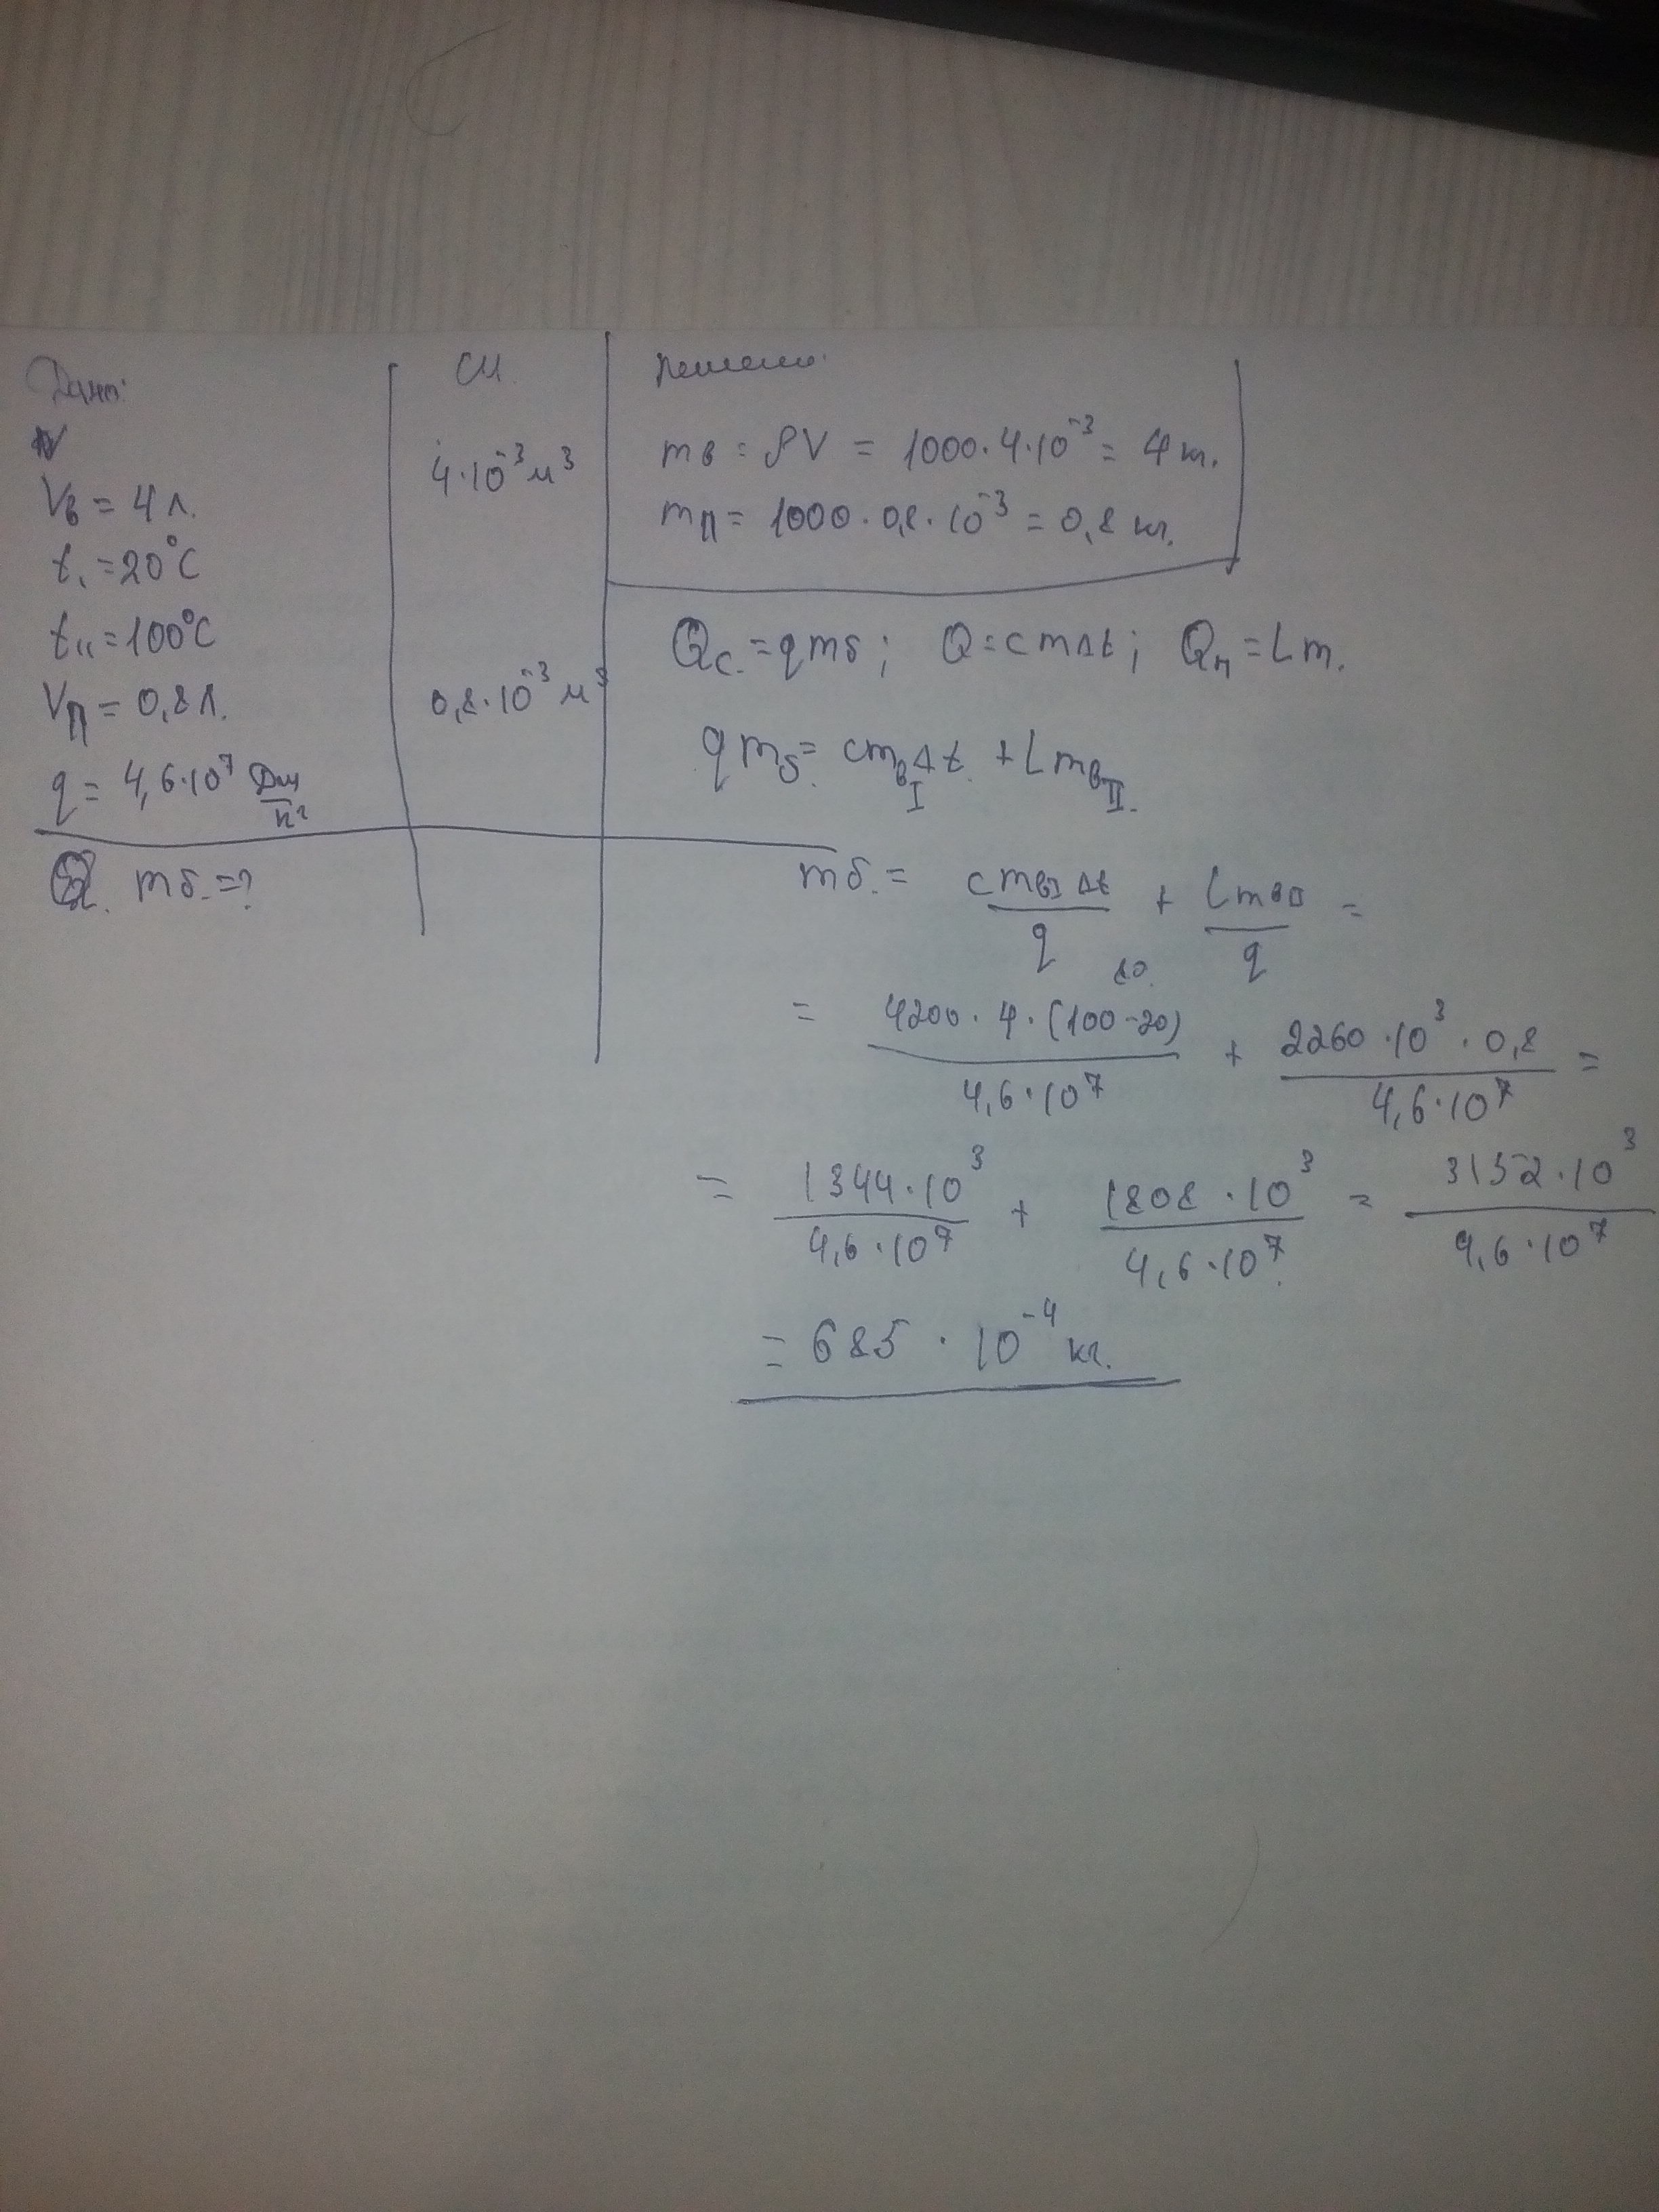 Дано:
V
Vв = 4 л.
t₁ = 20°C
tк = 100°C
Vп = 0,8 л.
q = 4,6·10⁷ Дж/кг
Q. mб. = ?
СИ.
4·10⁻³ м³
0,8·10⁻³ м³
Решение:
mв = ρV = 1000·4·10⁻³ = 4 кг.
mп = 1000·0,8·10⁻³ = 0,8 кг.
Qс. = qmб; Q = cmΔt; Qп = Lm.
qmб. = cmвIΔt. + LmвII.
mб. = cmвIΔt/q + LmвII/q =
80.
= 4200·4·(100-20)/4,6·10⁷ + 2260·10³·0,8/4,6·10⁷ =
= 1344·10³/4,6·10⁷ + 1808·10³/4,6·10⁷ = 3152·10³/4,6·10⁷
= 685·10⁻⁴ кг.